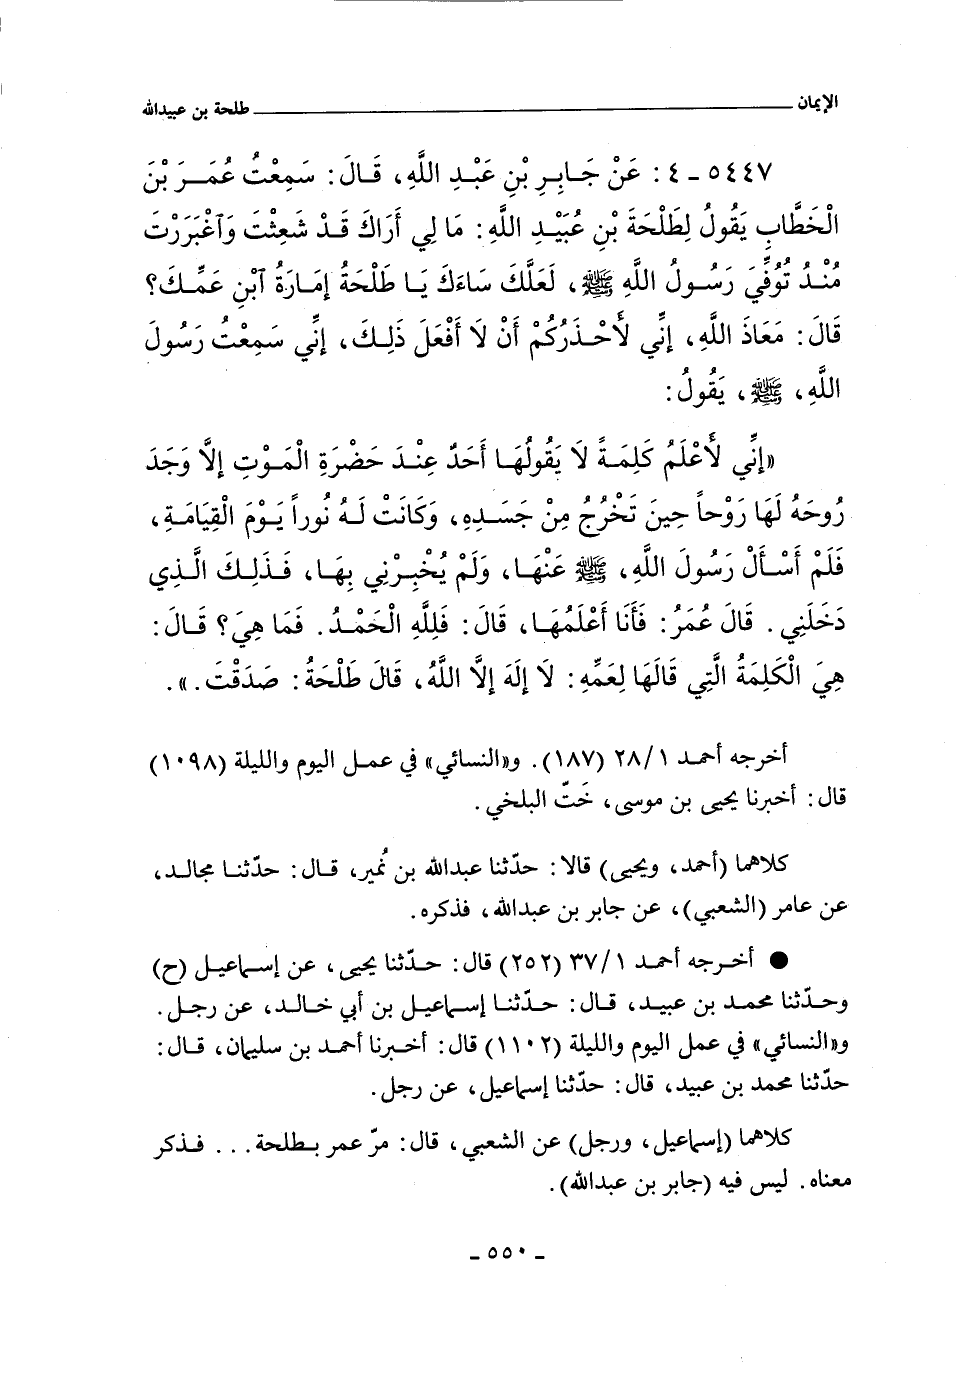 الإيمان ــــــــــ طلحة بن عبيدالله
٥٤٤٧ - ٤ : عَنْ جَابِرِ بْنِ عَبْدِ اللَّهِ، قَالَ: سَمِعْتُ عُمَرَ بْنَ
الْخَطَّابِ يَقُولُ لِطَلْحَةَ بْنِ عُبَيْدِ اللَّهِ: مَا لِي أَرَاكَ قَدْ شَعِثْتَ وَآغْبَرَرْتَ
مُنْذُ تُوُفِّيَ رَسُولُ اللَّهِ ﷺ، لَعَلَّكَ سَاءَكَ يَا طَلْحَةُ إِمَارَةُ آبْنِ عَمِّكَ؟
قَالَ: مَعَاذَ اللَّهِ، إِنِّي لَأَحْذَرُكُمْ أَنْ لَا أَفْعَلَ ذَلِكَ، إِنِّي سَمِعْتُ رَسُولَ
اللَّهِ، ﷺ، يَقُولُ:
«إِنِّي لَأَعْلَمُ كَلِمَةً لَا يَقُولُهَا أَحَدٌ عِنْدَ حَضْرَةِ الْمَوْتِ إِلَّا وَجَدَ
رُوحَهُ لَهَا رَوْحاً حِينَ تَخْرُجُ مِنْ جَسَدِهِ، وَكَانَتْ لَهُ نُوراً يَوْمَ الْقِيَامَةِ،
فَلَمْ أَسْأَلْ رَسُولَ اللَّهِ، ﷺ عَنْهَا، وَلَمْ يُخْبِرْنِي بِهَا، فَذَلِكَ الَّذِي
دَخَلَنِي. قَالَ عُمَرُ: فَأَنَا أَعْلَمُهَا، قَالَ: فَلِلَّهِ الْحَمْدُ. فَمَا هِيَ؟ قَالَ:
هِيَ الْكَلِمَةُ الَّتِي قَالَهَا لِعَمِّهِ: لَا إِلَهَ إِلَّا اللَّهُ، قَالَ طَلْحَةُ: صَدَقْتَ.».
أخرجه أحمد ٢٨/١ (١٨٧). و«النسائي» في عمل اليوم والليلة (١٠٩٨)
قال: أخبرنا يحيى بن موسى، خَتّ البلخي.
كلاهما (أحمد، ويحيى) قالا: حدّثنا عبدالله بن نُمير، قال: حدّثنا مجالد،
عن عامر (الشعبي)، عن جابر بن عبدالله، فذكره.
● أخرجه أحمد ٣٧/١ (٢٥٢) قال: حدّثنا يحيى، عن إسماعيل (ح)
وحدّثنا محمد بن عبيد، قال: حدّثنا إسماعيل بن أبي خالد، عن رجل.
و«النسائي» في عمل اليوم والليلة (١١٠٢) قال: أخبرنا أحمد بن سليمان، قال:
حدّثنا محمد بن عبيد، قال: حدّثنا إسماعيل، عن رجل.
كلاهما (إسماعيل، ورجل) عن الشعبي، قال: مرّ عمر بطلحة... فذكر
معناه. ليس فيه (جابر بن عبدالله).
- ٥٥٠ -